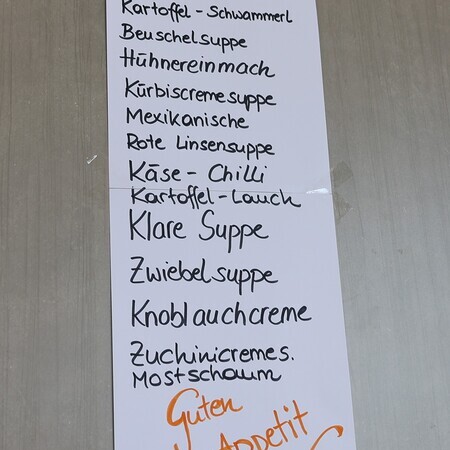 Kartoffel - Schwammerl
Beuschelsuppe
Hühnereinmach
Kürbiscremesuppe
Mexikanische
Rote Linsensuppe
Käse - Chilli
Kartoffel - Lauch
Klare Suppe
Zwiebelsuppe
Knoblauchcreme
Zuchinicremes.
Mostschaum
Guten
Appetit